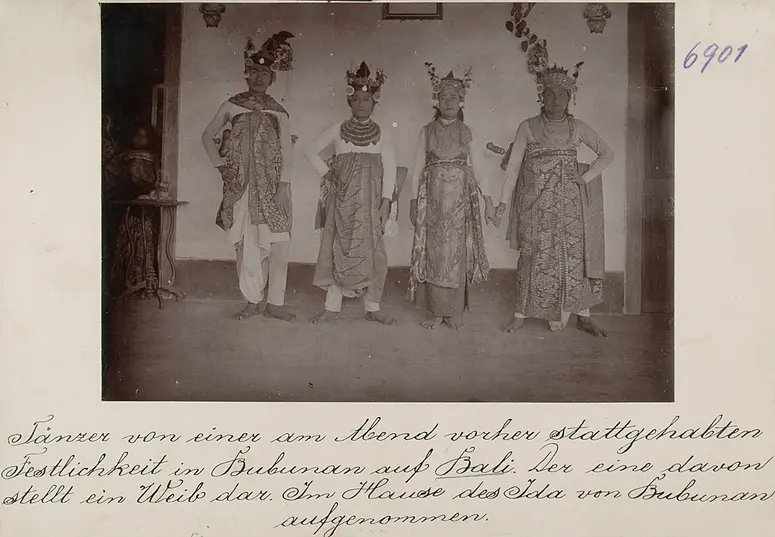 6901
Tänzer von einer am Abend vorher stattgehabten
Festlichkeit in Bubunan auf Bali. Der eine davon
stellt ein Weib dar. Im Hause des Ida von Bubunan
aufgenommen.